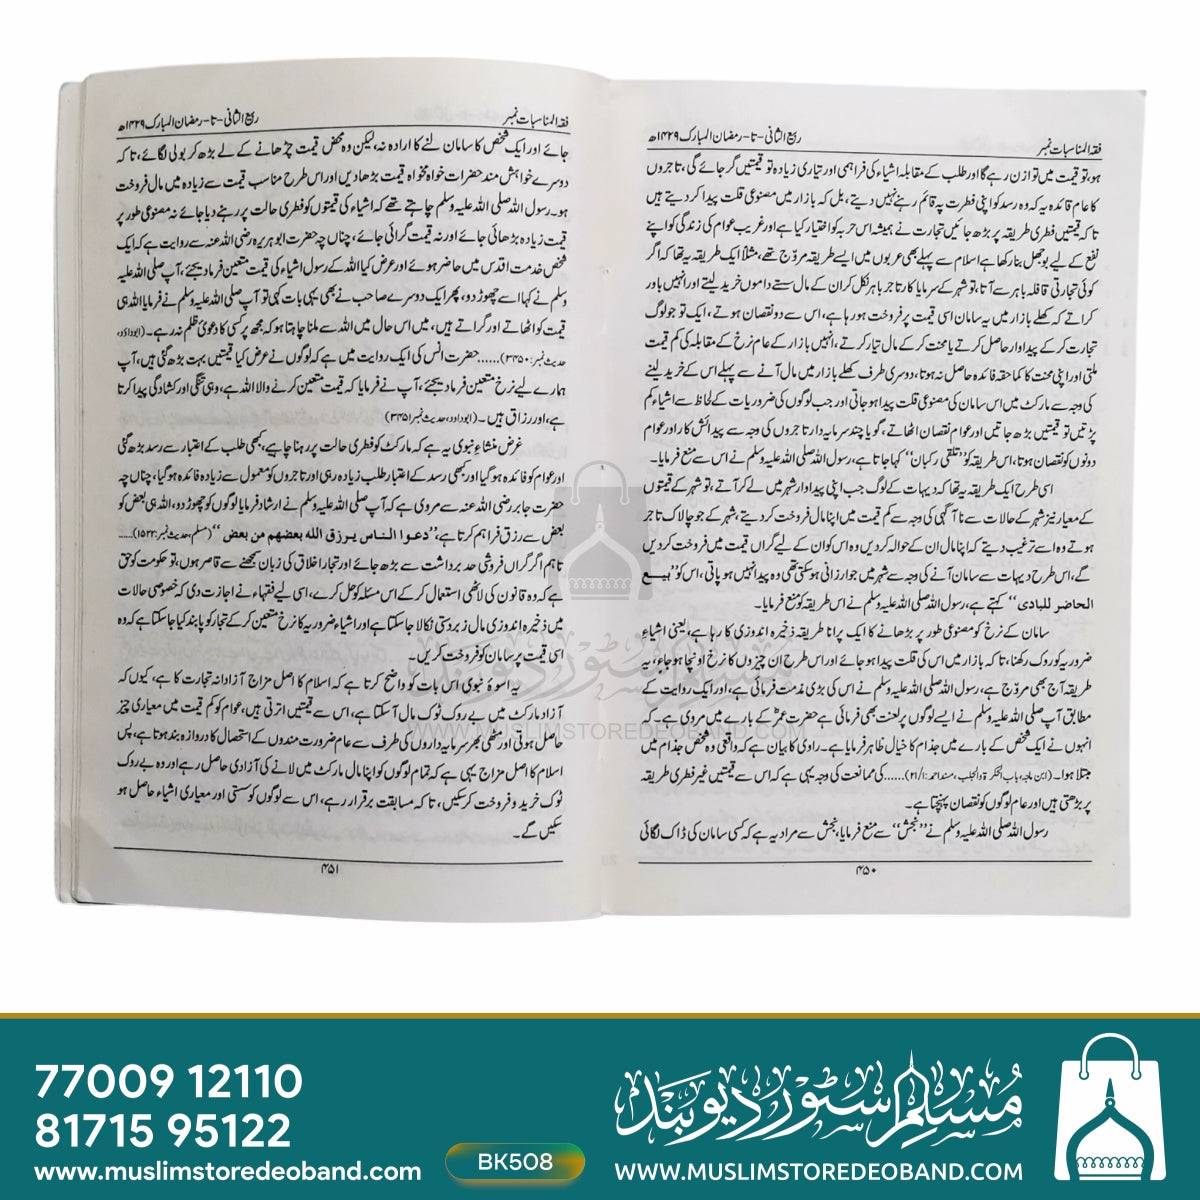 فقہ المناسبات نمبر
ربیع الثانی-تا-رمضان المبارک ۱۴۲۹ھ
ہو، تو قیمت میں توازن رہے گا اور طلب کے مقابلہ اشیاء کی فراہمی اور تیاری زیادہ ہو تو قیمتیں گر جائے گی، تاجروں
کا عام قاعدہ یہ کہ وہ رسد کو اپنی فطرت پہ قائم رہنے نہیں دیتے، بل کہ بازار میں مصنوعی قلت پیدا کر دیتے ہیں
تاکہ قیمتیں فطری طریقہ پر بڑھ جائیں تجارت نے ہمیشہ اس حربہ کو اختیار کیا ہے اور غریب عوام کی زندگی کو اپنے
نفع کے لیے بوجھل بنا رکھا ہے اسلام سے پہلے بھی عربوں میں ایسے طریقہ مروّج تھے، مثلاً ایک طریقہ یہ تھا کہ اگر
کوئی تجارتی قافلہ باہر سے آتا، تو شہر کے سرمایا کار تاجر باہر نکل کر ان کے مال سستے داموں خرید لیتے اور انہیں باور
کراتے کہ کھلے بازار میں یہ سامان اسی قیمت پر فروخت ہو رہا ہے، اس سے دو نقصان ہوتے، ایک تو جو لوگ
تجارت کر کے پیداوار حاصل کرتے یا محنت کر کے مال تیار کرتے، انہیں بازار کے عام نرخ کے مقابلہ کی کم قیمت
ملتی اور اپنی محنت کا کما حقہ فائدہ حاصل نہ ہوتا، دوسری طرف کھلے بازار میں مال آنے سے پہلے اس کے خرید لینے
کی وجہ سے مارکٹ میں اس سامان کی مصنوعی قلت پیدا ہو جاتی اور جب لوگوں کی ضروریات کے لحاظ سے اشیاء کم
پڑتیں تو قیمتیں بڑھ جاتیں اور عوام نقصان اٹھاتے، گویا چند سرمایہ دار تاجروں کی وجہ سے پیدائش کار اور عوام
دونوں کو نقصان ہوتا، اس طریقہ کو ’’تلقی رکبان‘‘ کہا جاتا ہے، رسول اللہ صلی اللہ علیہ وسلم نے اس سے منع فرمایا۔
اسی طرح ایک طریقہ یہ تھا کہ دیہات کے لوگ جب اپنی پیداوار شہر میں لے کر آتے، تو شہر کے قیمتوں
کے معیار نیز شہر کے حالات سے ناآگہی کی وجہ سے کم قیمت میں اپنا مال فروخت کر دیتے، شہر کے جو چالاک تاجر
ہوتے وہ اسے ترغیب دیتے کہ اپنا مال ان کے حوالہ کر دیں وہ اس کو ان کے لیے گراں قیمت میں فروخت کر دیں
گے، اس طرح دیہات سے سامان آنے کی وجہ سے شہر میں جو ارزانی ہو سکتی تھی وہ پیدا نہیں ہو پاتی، اس کو ’’بیع
الحاضر للبادی‘‘ کہتے ہے، رسول اللہ صلی اللہ علیہ وسلم نے اس طریقہ کو منع فرمایا۔
سامان کے نرخ کو مصنوعی طور پر بڑھانے کا ایک پرانا طریقہ ذخیرہ اندوزی کا رہا ہے، یعنی اشیاءِ
ضروریہ کو روک رکھنا، تاکہ بازار میں اس کی قلت پیدا ہو جائے اور اس طرح ان چیزوں کا نرخ اونچا ہو جاءِ، یہ
طریقہ آج بھی مروّج ہے، رسول اللہ صلی اللہ علیہ وسلم نے اس کی بڑی مذمت فرمائی ہے، اور ایک روایت کے
مطابق آپ صلی اللہ علیہ وسلم نے ایسے لوگوں پر لعنت بھی فرمائی ہے حضرت عمرؓ کے بارے میں مروی ہے۔ کہ
انہوں نے ایک شخص کے بارے میں جذام کا خیال ظاہر فرمایا ہے۔ راوی کا بیان ہے کہ واقعی وہ شخص جذام میں
مبتلا ہوا۔ (ابن ماجہ، باب الحکرۃ والجلب، مسند احمد:۲۱/۱)......کی ممانعت کی وجہ یہی ہے کہ اس سے قیمتیں غیر فطری طریقہ
پر بڑھتی ہیں اور عام لوگوں کو نقصان پہنچتا ہے۔
رسول اللہ صلی اللہ علیہ وسلم نے ’’نجش‘‘ سے منع فرمایا، نجش سے مراد یہ ہے کہ کسی سامان کی ڈاک لگائی
۴۵۰
فقہ المناسبات نمبر
ربیع الثانی-تا-رمضان المبارک ۱۴۲۹ھ
جائے اور ایک شخص کا سامان لنے کا ارادہ نہ، لیکن وہ محض قیمت چڑھانے کے لے بڑھ کر بولی لگائے، تاکہ
دوسرے خواہش مند حضرات خواہ مخواہ قیمت بڑھا دیں اور اس طرح مناسب قیمت سے زیادہ میں مال فروخت
ہو۔ رسول اللہ صلی اللہ علیہ وسلم چاہتے تھے کہ اشیاء کی قیمتوں کو فطری حالت پر رہنے دیا جائے نہ مصنوعی طور پر
قیمت زیادہ بڑھائی جائے اور نہ قیمت گرائی جائے، چناں چہ حضرت ابو ہریرہ رضی اللہ عنہ سے روایت ہے کہ ایک
شخص خدمت اقدس میں حاضر ہوئے اور عرض کیا اللہ کے رسول اشیاء کی قیمت متعین فرما دیجئے، آپ صلی اللہ علیہ
وسلم نے کہا اسے چھوڑ دو، پھر ایک دوسرے صاحب نے بھی یہی بات کہی تو آپ صلی اللہ علیہ وسلم نے فرمایا اللہ ہی
قیمت کو اٹھاتے اور گراتے ہیں، میں اس حال میں اللہ سے ملنا چاہتا ہو کہ مجھ پر کسی کا دعویٰ ظلم نہ رہے۔ (ابو داؤد،
حدیث نمبر:۳۴۵۰)......حضرت انس کی ایک روایت میں ہے کہ لوگوں نے عرض کیا قیمتیں بہت بڑھ گئی ہیں، آپ
ہمارے لیے نرخ متعین فرما دیجئے، آپ نے فرمایا کہ قیمت متعین کرنے والا اللہ ہے، وہی تنگی اور کشادگی پیدا کرتا
ہے، اور رزاق ہیں۔ (ابوداود، حدیث نمبر ۳۴۵۱)
غرض منشاءِ نبوی یہ ہے کہ مارکٹ کو فطری حالت پر رہنا چاہیے، کبھی طلب کے اعتبار سے رسد بڑھ گئی
اور عوام کو فائدہ ہو گیا اور کبھی رسد کے اعتبار طلب زیادہ رہی اور تاجروں کو معمول سے زیادہ فائدہ ہو گیا، چناں چہ
حضرت جابر رضی اللہ عنہ سے مروی ہے کہ آپ صلی اللہ علیہ وسلم نے ارشاد فرمایا لوگوں کو چھوڑ دو، اللہ ہی بعض کو
بعض سے رزق فراہم کرتا ہے، ’’دعوا الناس یرزق اللہ بعضھم من بعض‘‘ (مسلم، حدیث نمبر:۱۵۲۲)......
تاہم اگر گراں فروشی حد برداشت سے بڑھ جائے اور تجار اخلاق کی زبان سمجھنے سے قاصر ہوں، تو حکومت کو حق
ہے کہ وہ قانون کی لاٹھی استعمال کر کے اس مسئلہ کو حل کرے، اسی لیے فقہاء نے اجازت دی کہ خصوصی حالات
میں ذخیرہ اندوزی مال زبردستی نکالا جا سکتا ہے اور اشیاءِ ضروریہ کا نرخ متعین کر کے تجار کو پابند کیا جا سکتا ہے کہ وہ
اسی قیمت پر سامان کو فروخت کریں۔
یہ اسوۂ نبوی اس بات کو واضح کرتا ہے کہ اسلام کا اصل مزاج آزادانہ تجارت کا ہے، کیوں کہ
آزاد مارکٹ میں بے روک ٹوک مال آسکتا ہے، اس سے قیمتیں اترتی ہیں، عوام کو کم قیمت میں معیاری چیز
حاصل ہوتی اور مٹھی بھر سرمایہ داروں کی طرف سے عام ضرورت مندوں کے استحصال کا دروازہ بند ہوتا ہے، پس
اسلام کا اصل مزاج یہی ہے کہ تمام لوگوں کو اپنا مال مارکٹ میں لانے کی آزادی حاصل رہے اور وہ بے روک
ٹوک خرید و فروخت کر سکیں، تاکہ مسابقت برقرار رہے، اس سے لوگوں کو سستی اور معیاری اشیاء حاصل ہو
سکیں گے۔
۴۵۱
مسلم سٹور دیوبند
WWW.MUSLIMSTOREDEOBAND.COM
77009 12110
81715 95122
www.muslimstoredeoband.com
BK508
مسلم سٹور دیوبند
WWW.MUSLIMSTOREDEOBAND.COM